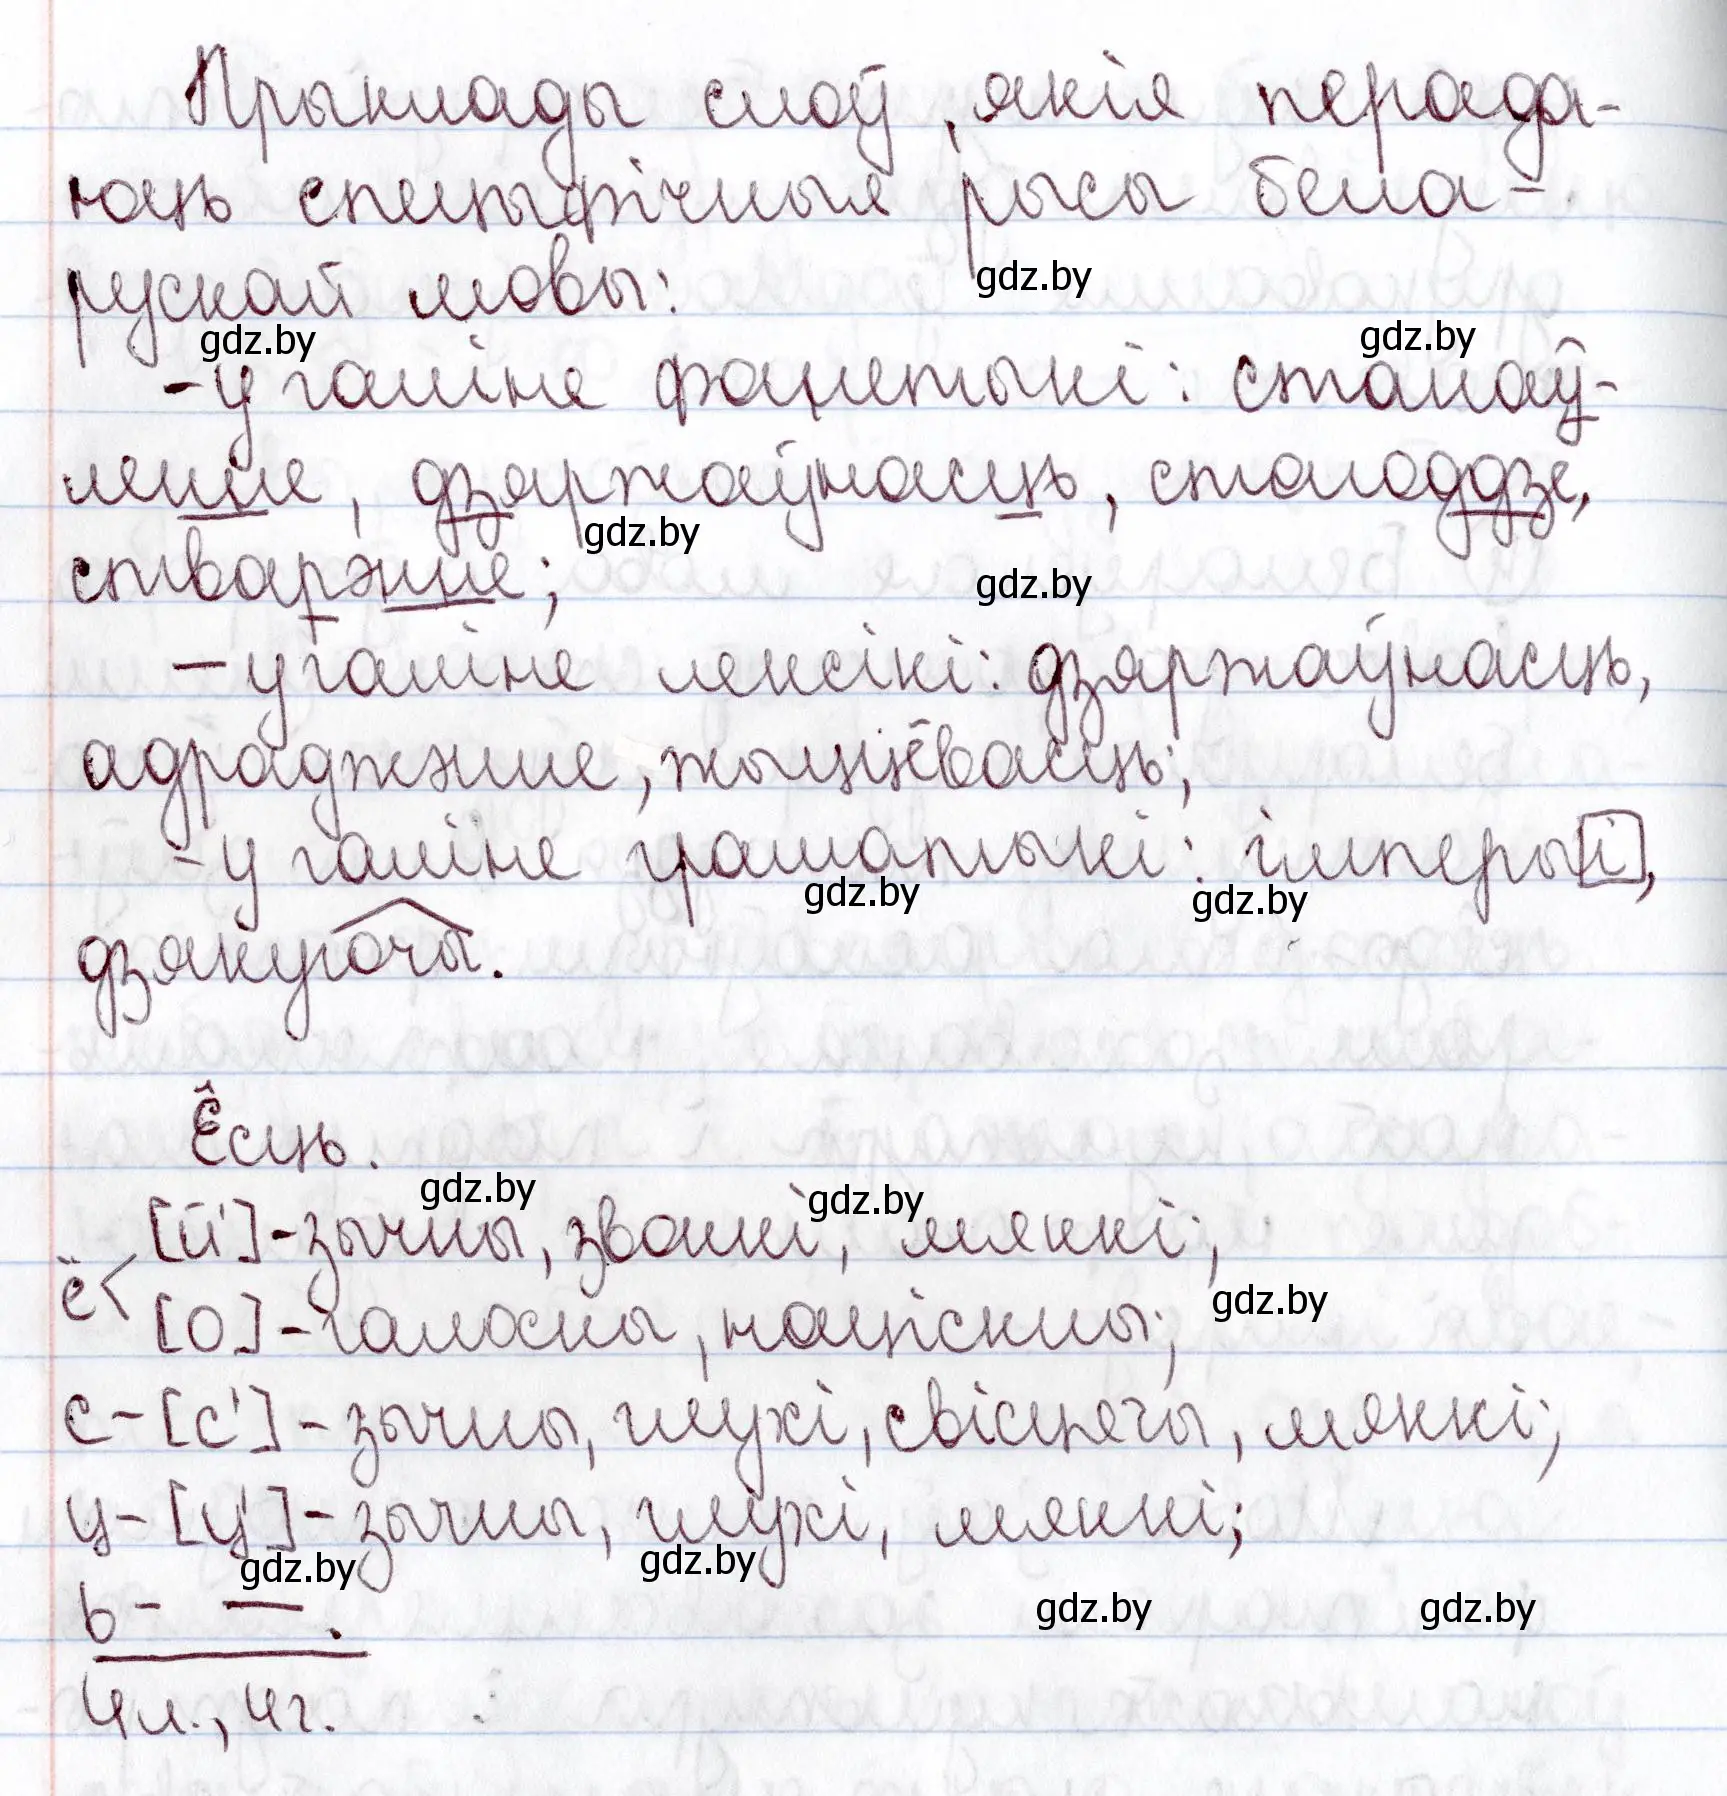 Прыклады слоў, якія перада-
юць спецыфічныя рысы бела-
рускай мовы:
gdz.by
gdz.by
gdz.by
- у галіне фанетыкі: станаў-
ленне, дзяржаўнасць, стагоддзе,
gdz.by
стварэнне;
gdz.by
- у галіне лексікі: дзяржаўнасць,
адраджэнне, жыццёвасць;
- у галіне граматыкі: імперыі,
gdz.by
gdz.by
дзякуючы.
Ёсць.
gdz.by
gdz.by
ё< [й'] - зычны, звонкі, мяккі;
[о] - галосны, націскны;
gdz.by
с - [с'] - зычны, глухі, свісцячы, мяккі;
ц - [ц'] - зычны, глухі, мяккі;
gdz.by
gdz.by
ь - — .
gdz.by
gdz.by
4 л., 4 г.